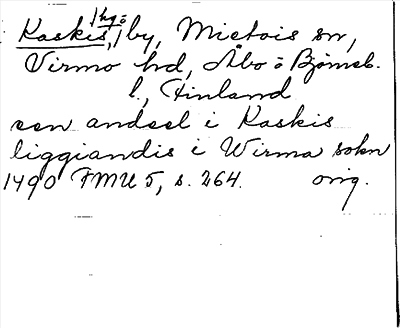 hg o
Kaskis, by, Mietois sn,
Virmo hd, Åbo o Björneb.
l., Finland
een andeel i Kaskis
liggiandis i Wirma sokn
1490 FMU 5, s. 264. orig.